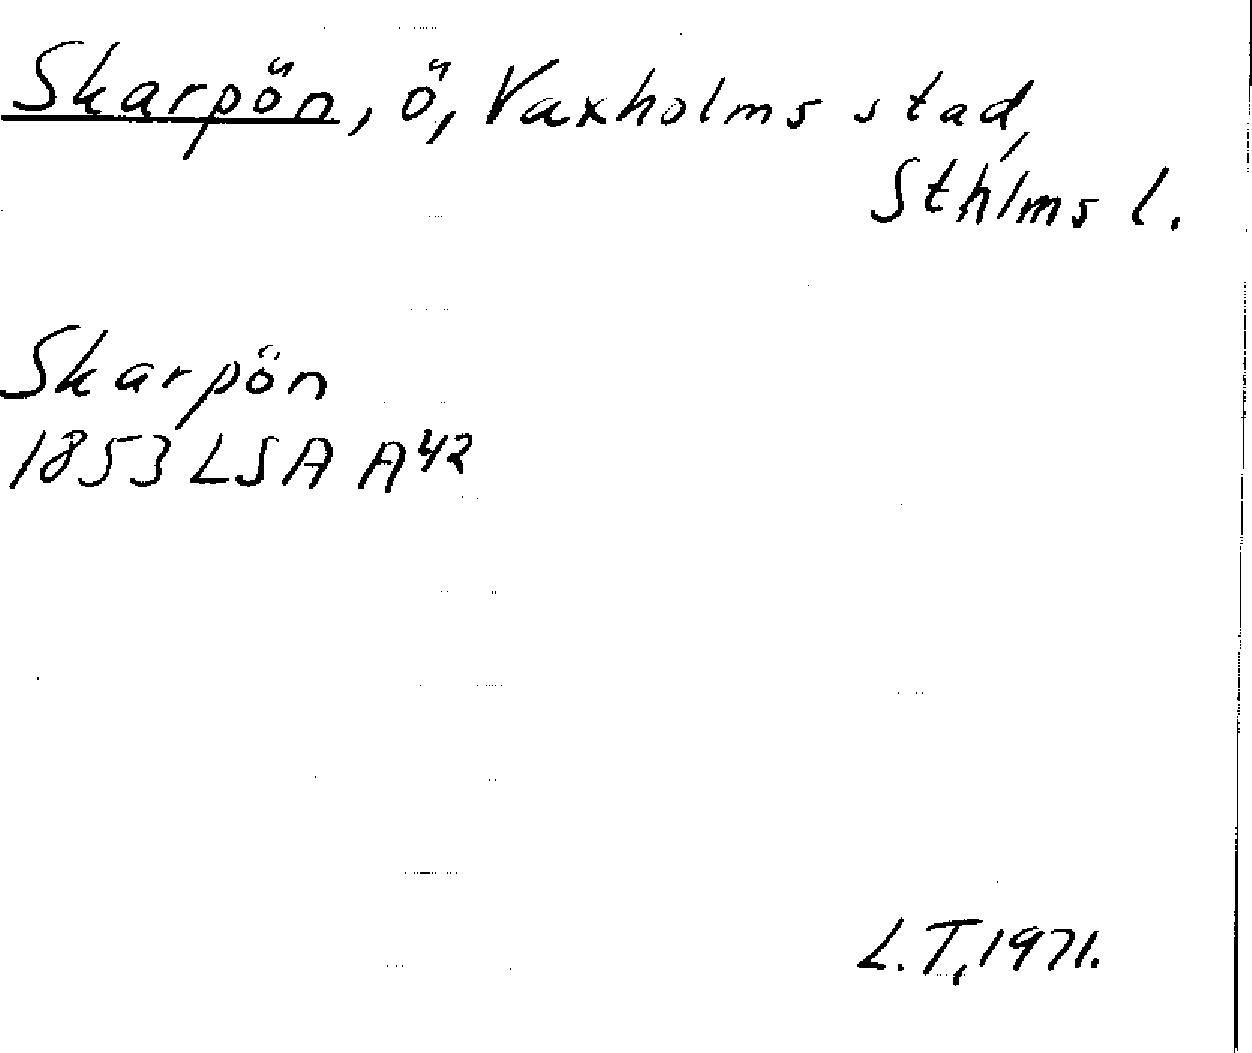 Skarpön, ö, Vaxholms stad,
Sthlms l.
Skarpön
1853 LSA A42
L.T, 1971.